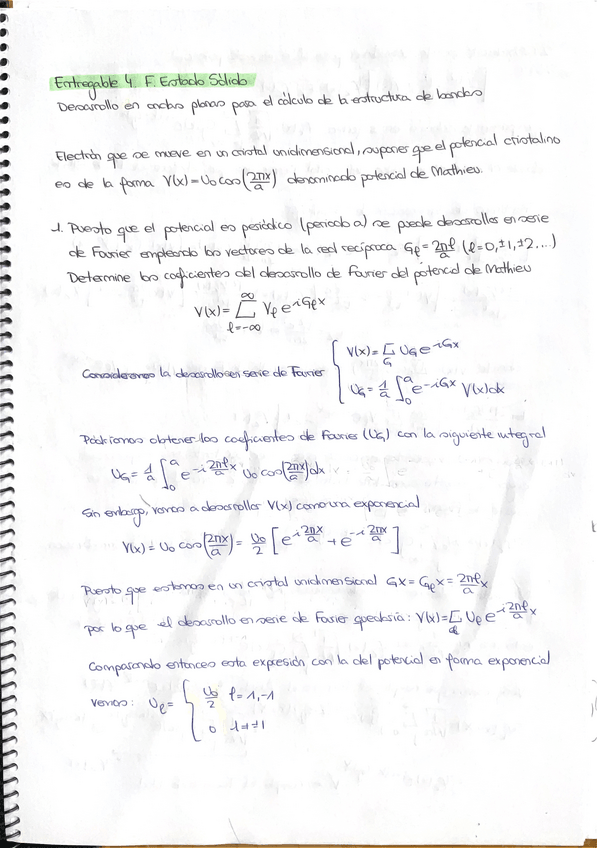 Entregable 4. F. Estado Sólido
Desarrollo en ondas planas para el cálculo de la estructura de bandas
Electrón que se mueve en un cristal unidimensional, suponer que el potencial cristalino
es de la forma V(x)=U₀cos(2πx/a) denominado potencial de Mathieu.
1. Puesto que el potencial es periódico (periodo a) se puede desarrollar en serie
de Fourier empleando los vectores de la red recíproca Gℓ = 2πℓ/a (ℓ=0,±1,±2...)
Determine los coeficientes del desarrollo de Fourier del potencial de Mathieu
V(x)= ∑_{ℓ=-∞}^{∞} Vℓ e^{iGℓx}
Consideramos la desarrollo en serie de Fourier { V(x)= ∑_G U_G e^{iGx}
U_G = 1/a ∫₀^a e^{-iGx} V(x)dx
Podríamos obtener los coeficientes de Fourier (U_G) con la siguiente integral
U_G = 1/a ∫₀^a e^{-i 2πℓ/a x} U₀ cos(2πx/a)dx
Sin embargo, vamos a desarrollar V(x) como una exponencial
V(x) = U₀ cos(2πx/a) = U₀/2 [e^{i 2πx/a} + e^{-i 2πx/a}]
Puesto que estamos en un cristal unidimensional Gx = Gℓx = 2πℓ/a x
por lo que el desarrollo en serie de Fourier quedaría: V(x)= ∑_ℓ Uℓ e^{i 2πℓ/a x}
Comparando entonces esta expresión con la del potencial en forma exponencial
vemos: Uℓ = { U₀/2 ℓ=1,-1
0 ℓ≠±1